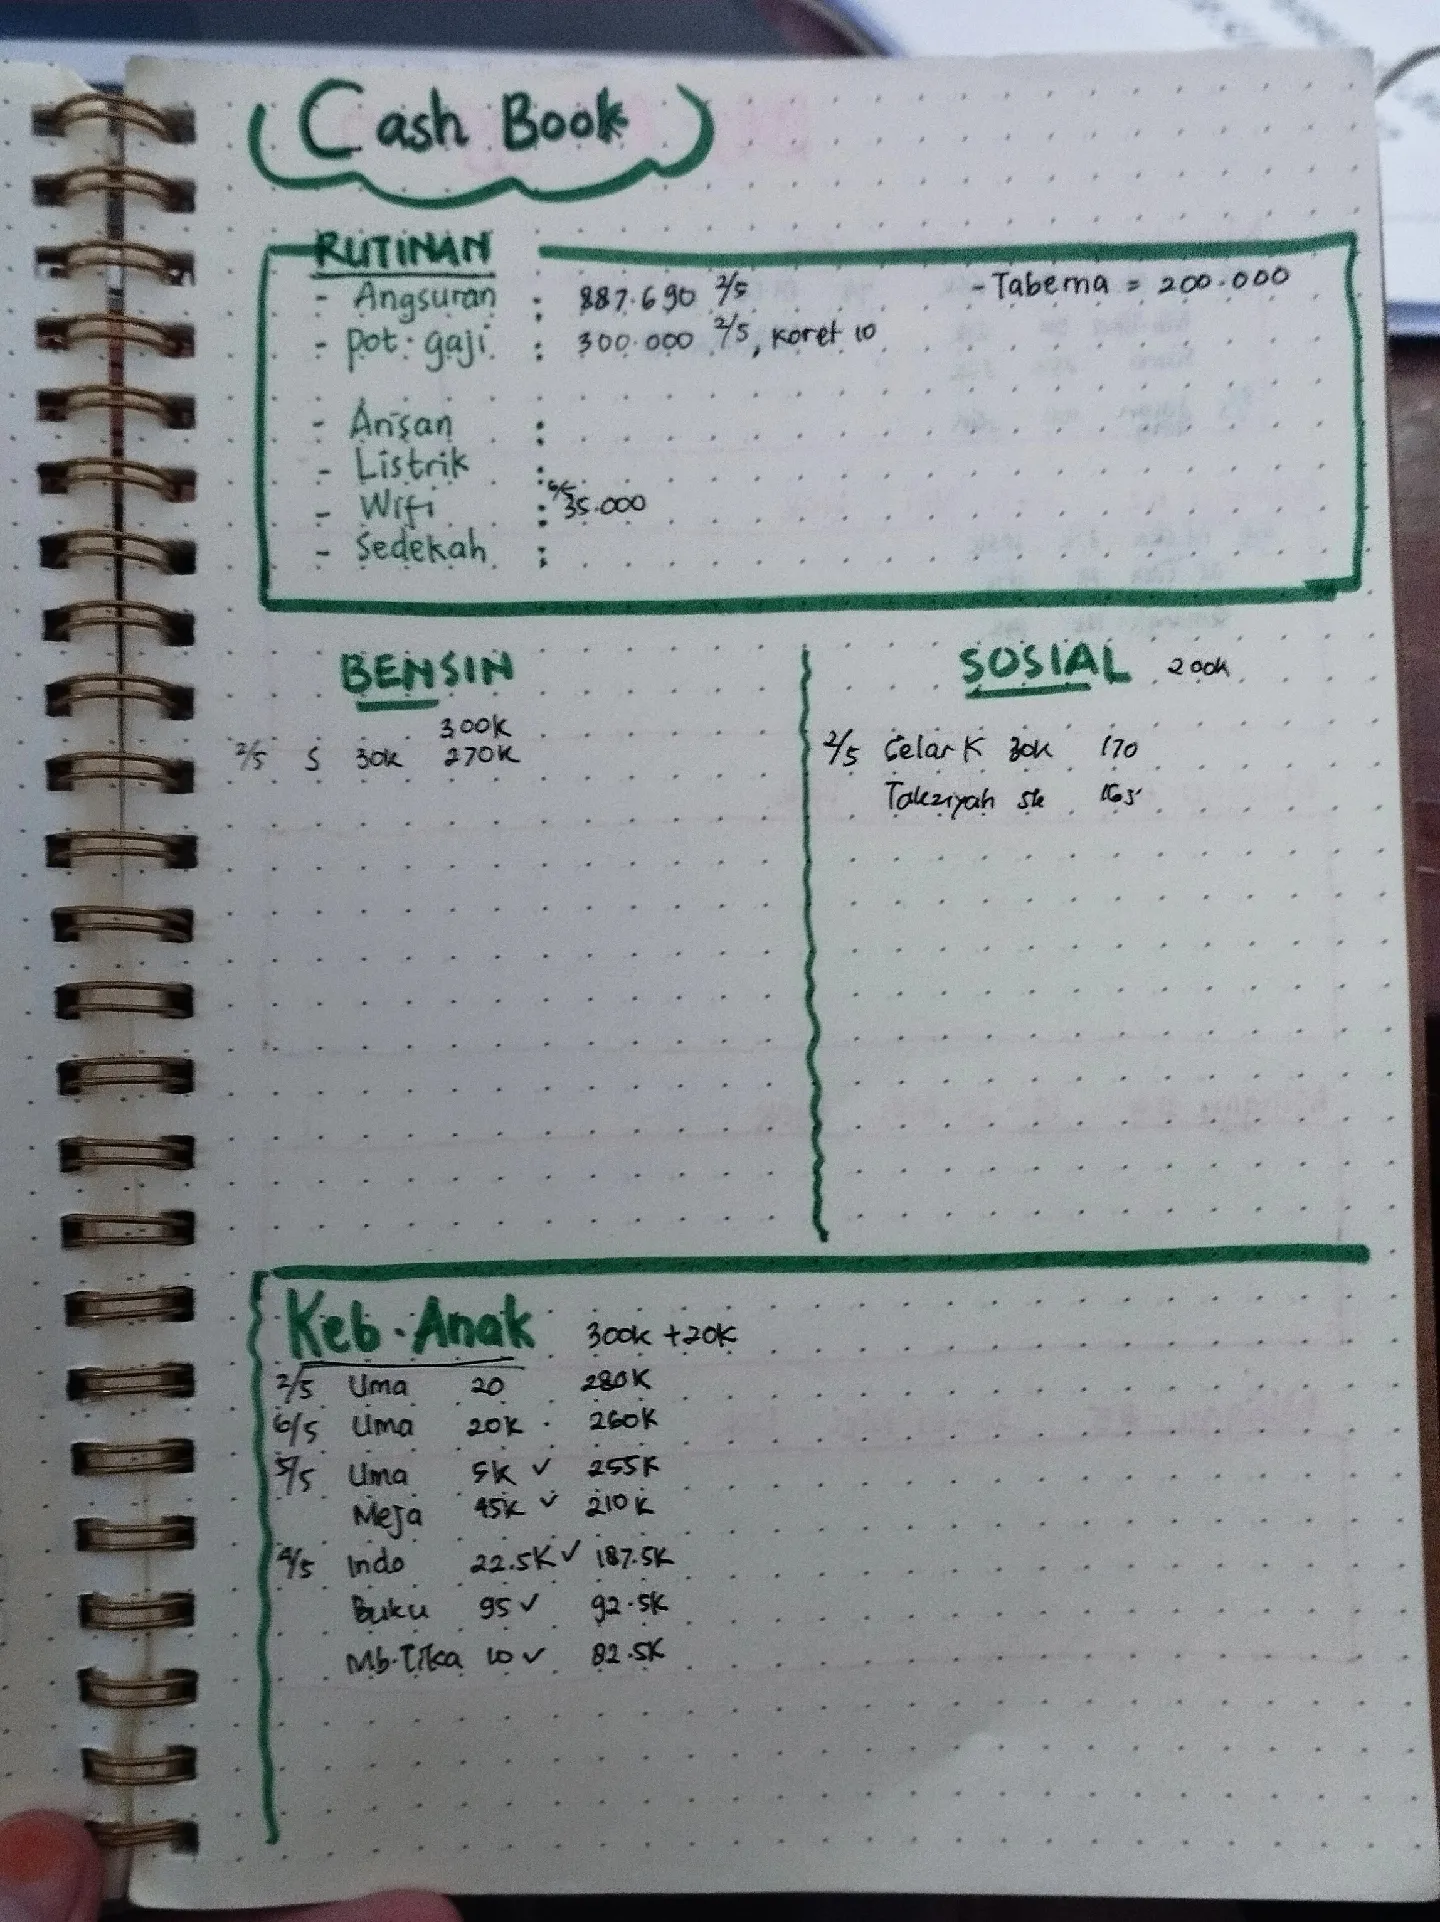 Cash Book
RUTINAN
- Angsuran : 887.690 2/5
- Tabema = 200.000
- pot. gaji : 300.000 2/5, Koret 10
- Arisan :
- Listrik :
- Wifi : 35.000
- Sedekah :
BENSIN
300K
2/5 S 30k 270K
SOSIAL 200k
2/5 K 30k 170
Takziyah 5k 165
Keb. Anak 300k +20K
2/5 Uma 20 280K
6/5 Uma 20K 260K
5/5 Uma 5K ✓ 255K
Meja 45K ✓ 210K
4/5 Indo 22.5K ✓ 187.5K
Buku 95 ✓ 92.5K
Mb. Tika 10 ✓ 82.5K